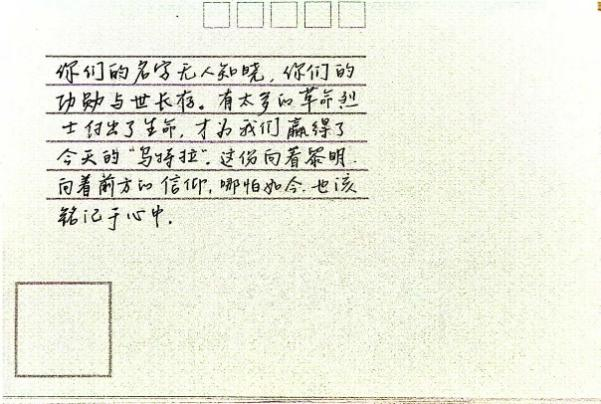 你们的名字无人知晓，你们的
功勋与世长存。有太多的革命烈
士付出了生命，才为我们赢得了
今天的“乌特拉”。这份向着黎明.
向着前方的信仰，哪怕如今.也该
铭记于心中.